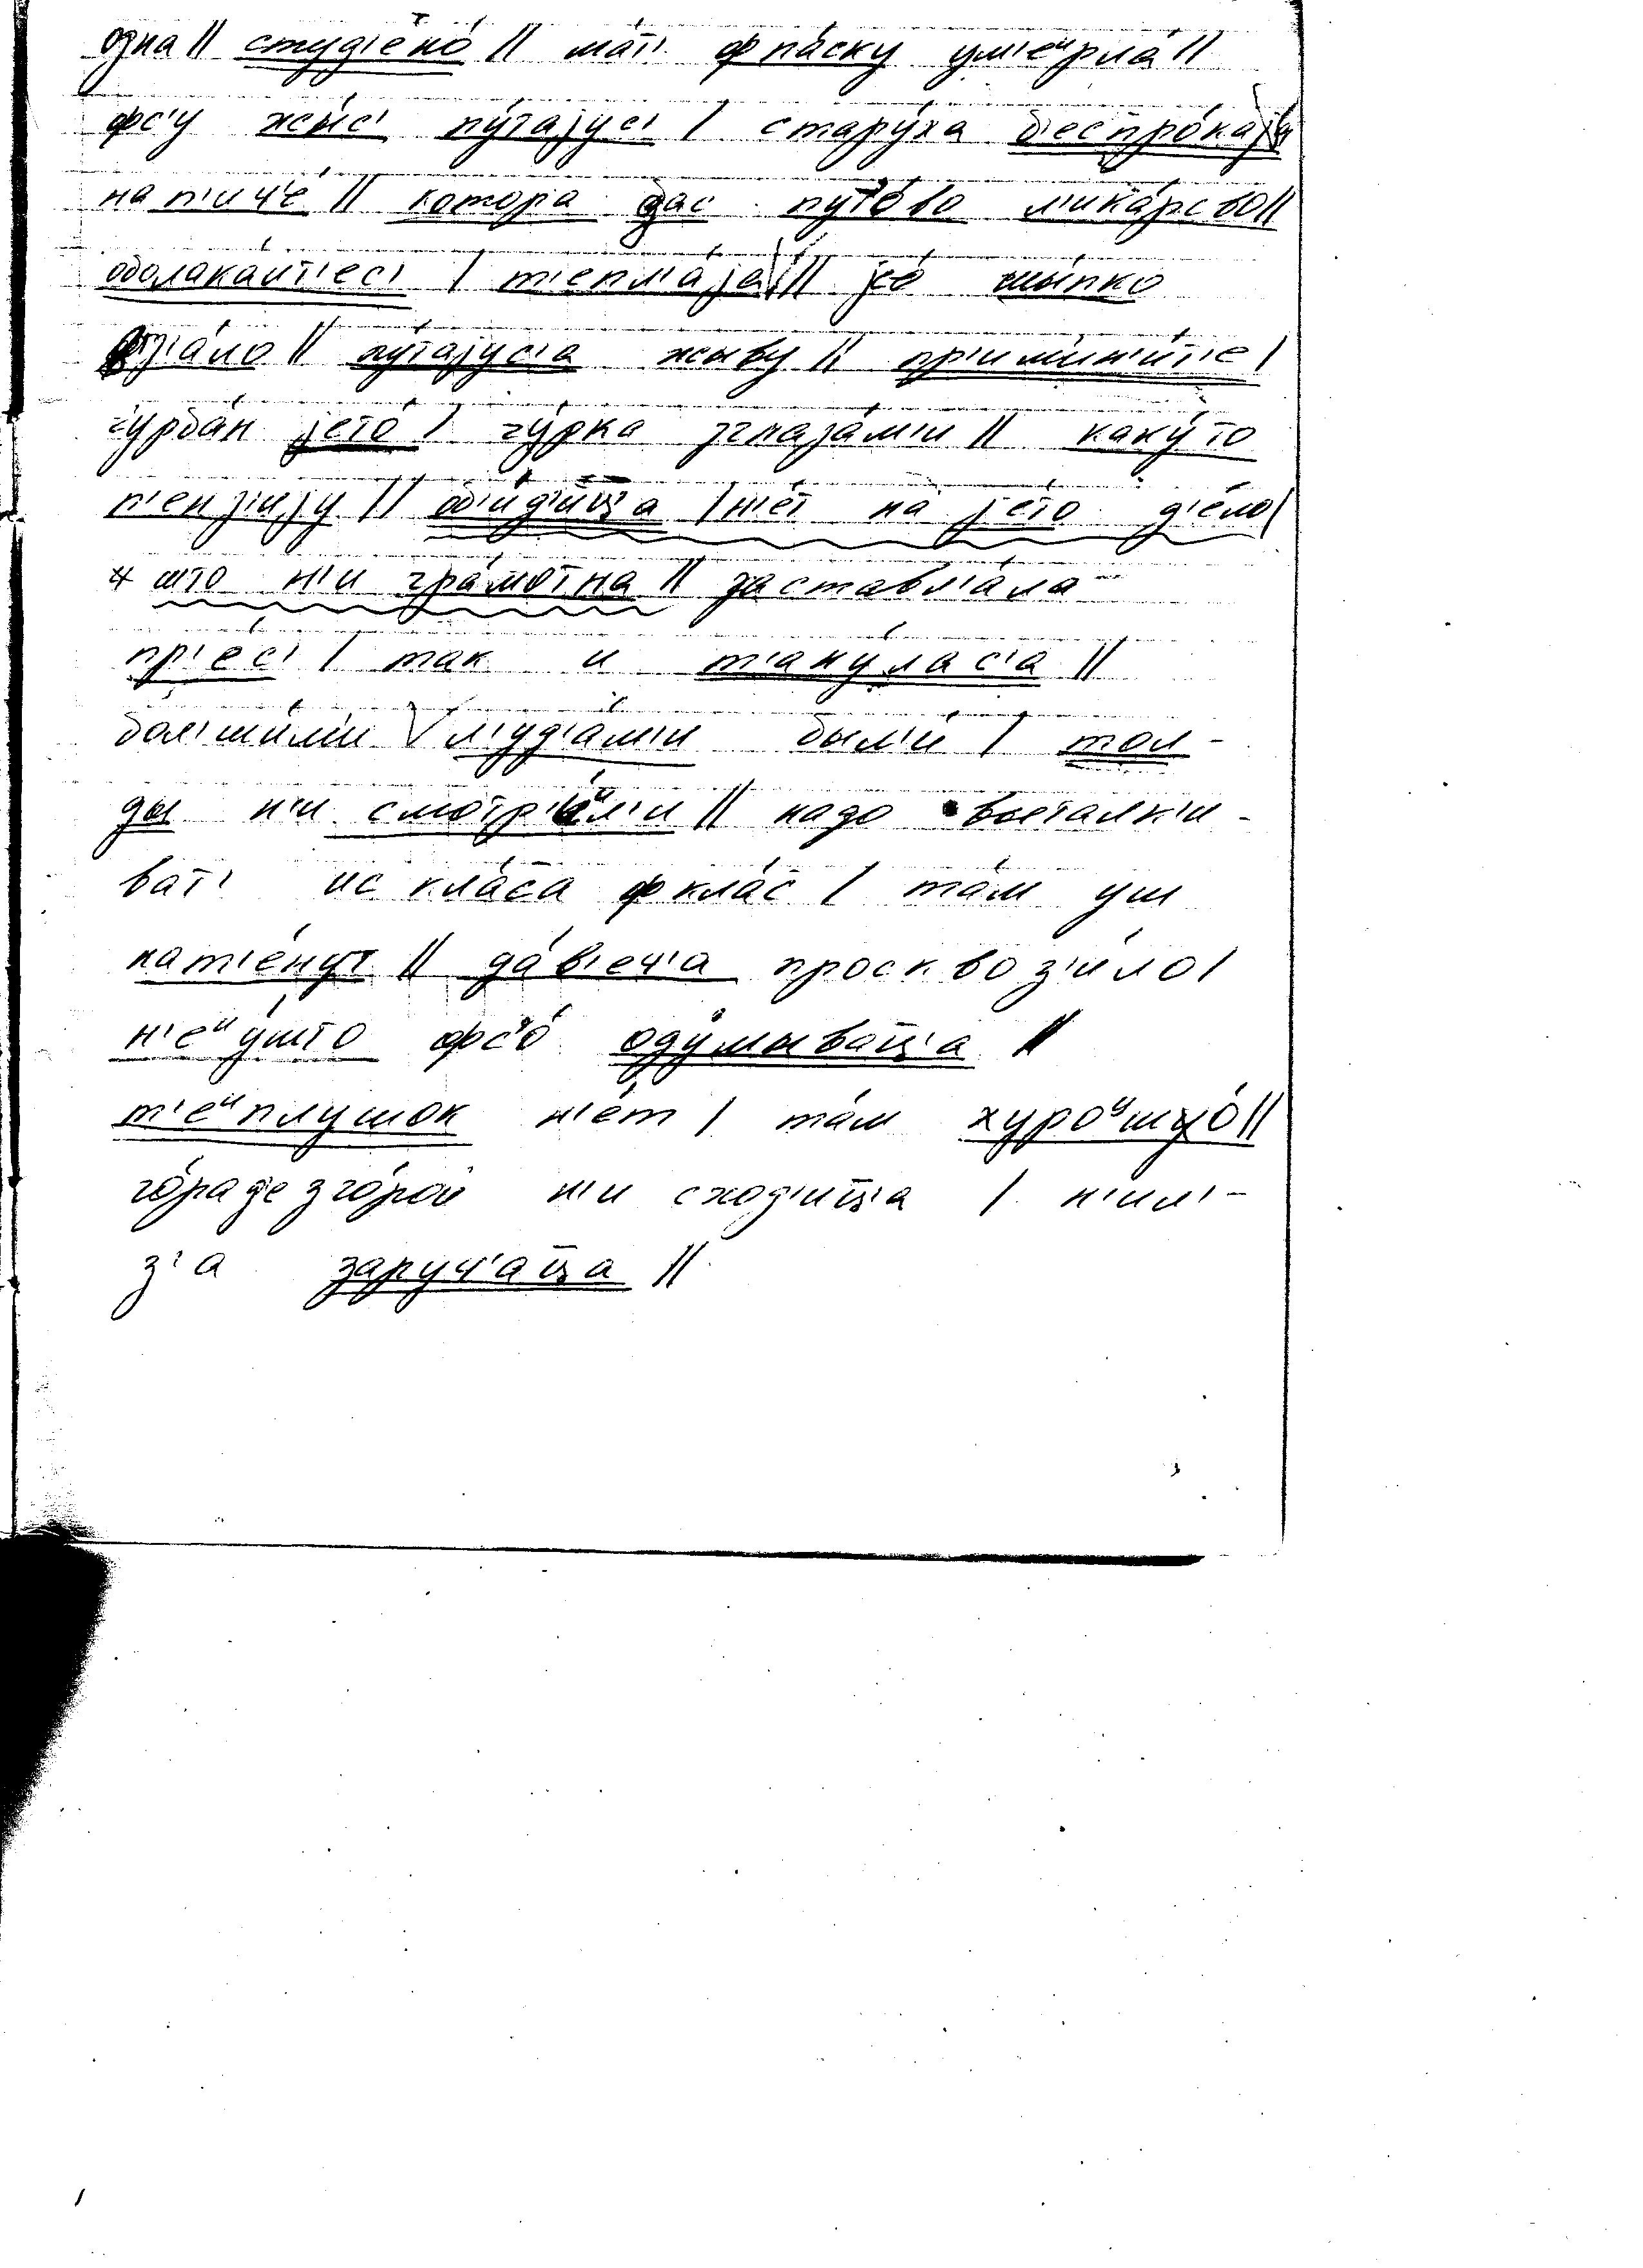 одна // студ'ено́ // ма́т' фпа́ску ум'еирла́ //
фс'у жы́с' пу́тајус' / стару́ха б'еспро́каја
на п'ич'е́ // котора дас путёво л'ика́рсво //
оболака́йт'ес' / т'епл'а́ја // јо́ шы́пко
вз'а́ло // пу́тајус'а жыву // пр'им'ин'и́т'е /
чурба́н јето́ / чу́рка згլаза́м'и // каку́то
п'ен'з'ију // об'и́д'ицца / н'ет на јето д'е́ло /
што н'и гра́мотна // заставл'а́ла
пр'е́с' / так и т'аку́лас'а //
бол'шы́м'и л'уд'а́м'и бы́л'и / тол-
ды н'и смотр'и́л'и // надо выталк'и-
ват' ис кла́са фкла́с / та́м уш
пат'е́нут // да́в'еч'а проскво з'и́ло /
н'еиу́што фс'о́ оду́мывацца //
т'еиплушок н'е́т / та́м хуро́шшо́ //
го́ра де зго́рой н'и сход'ицца / н'ил'-
з'а заруч'а́цца //